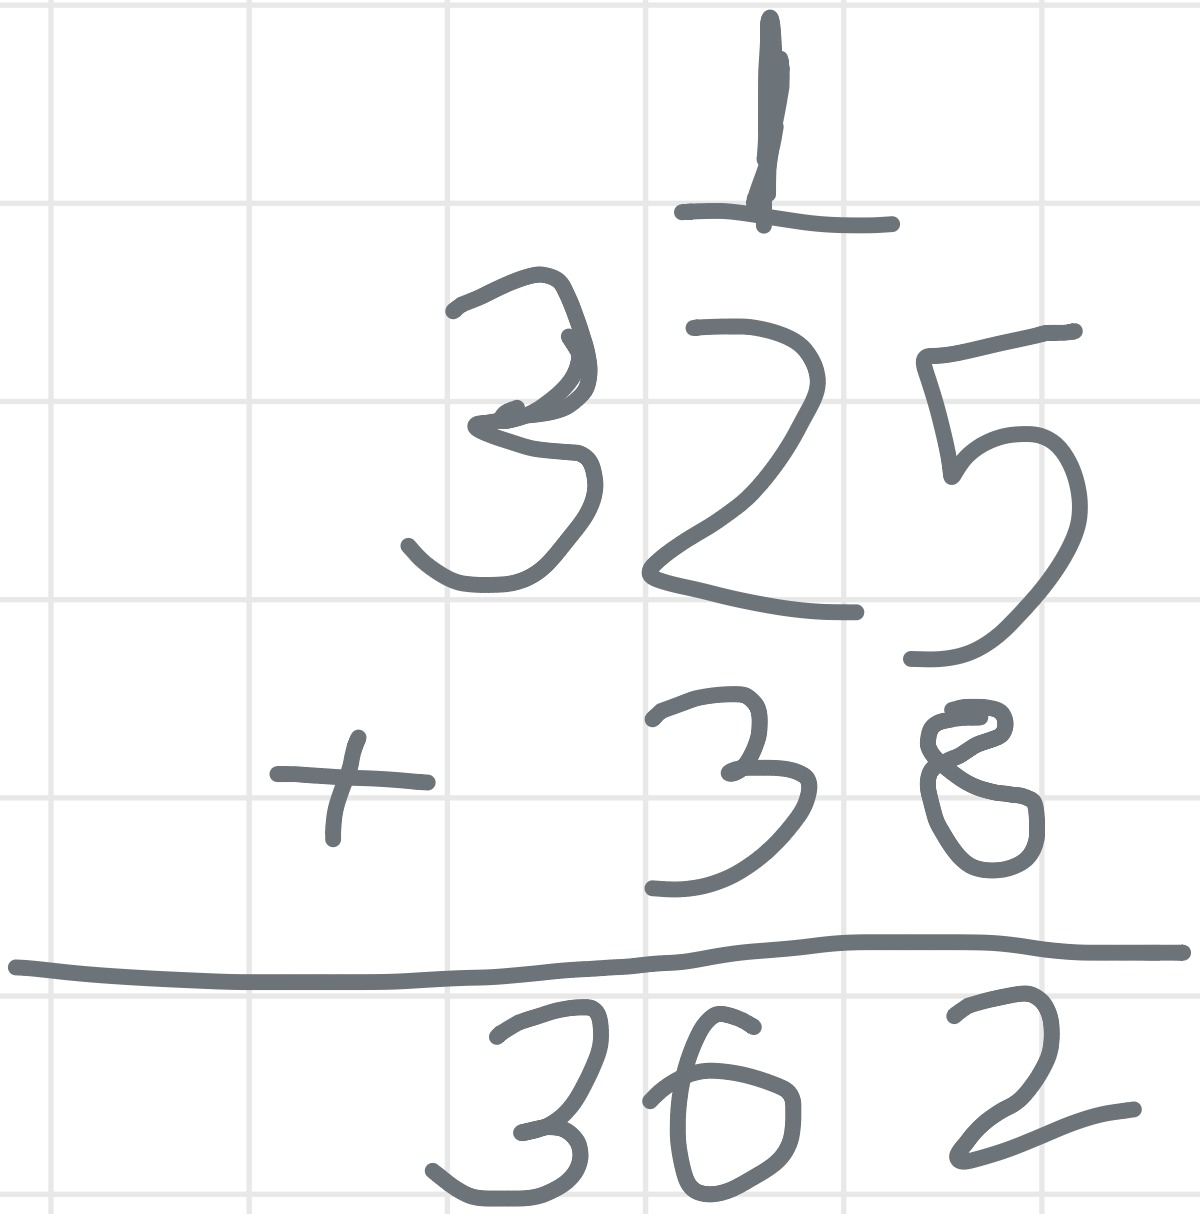 1
325
+ 38
362